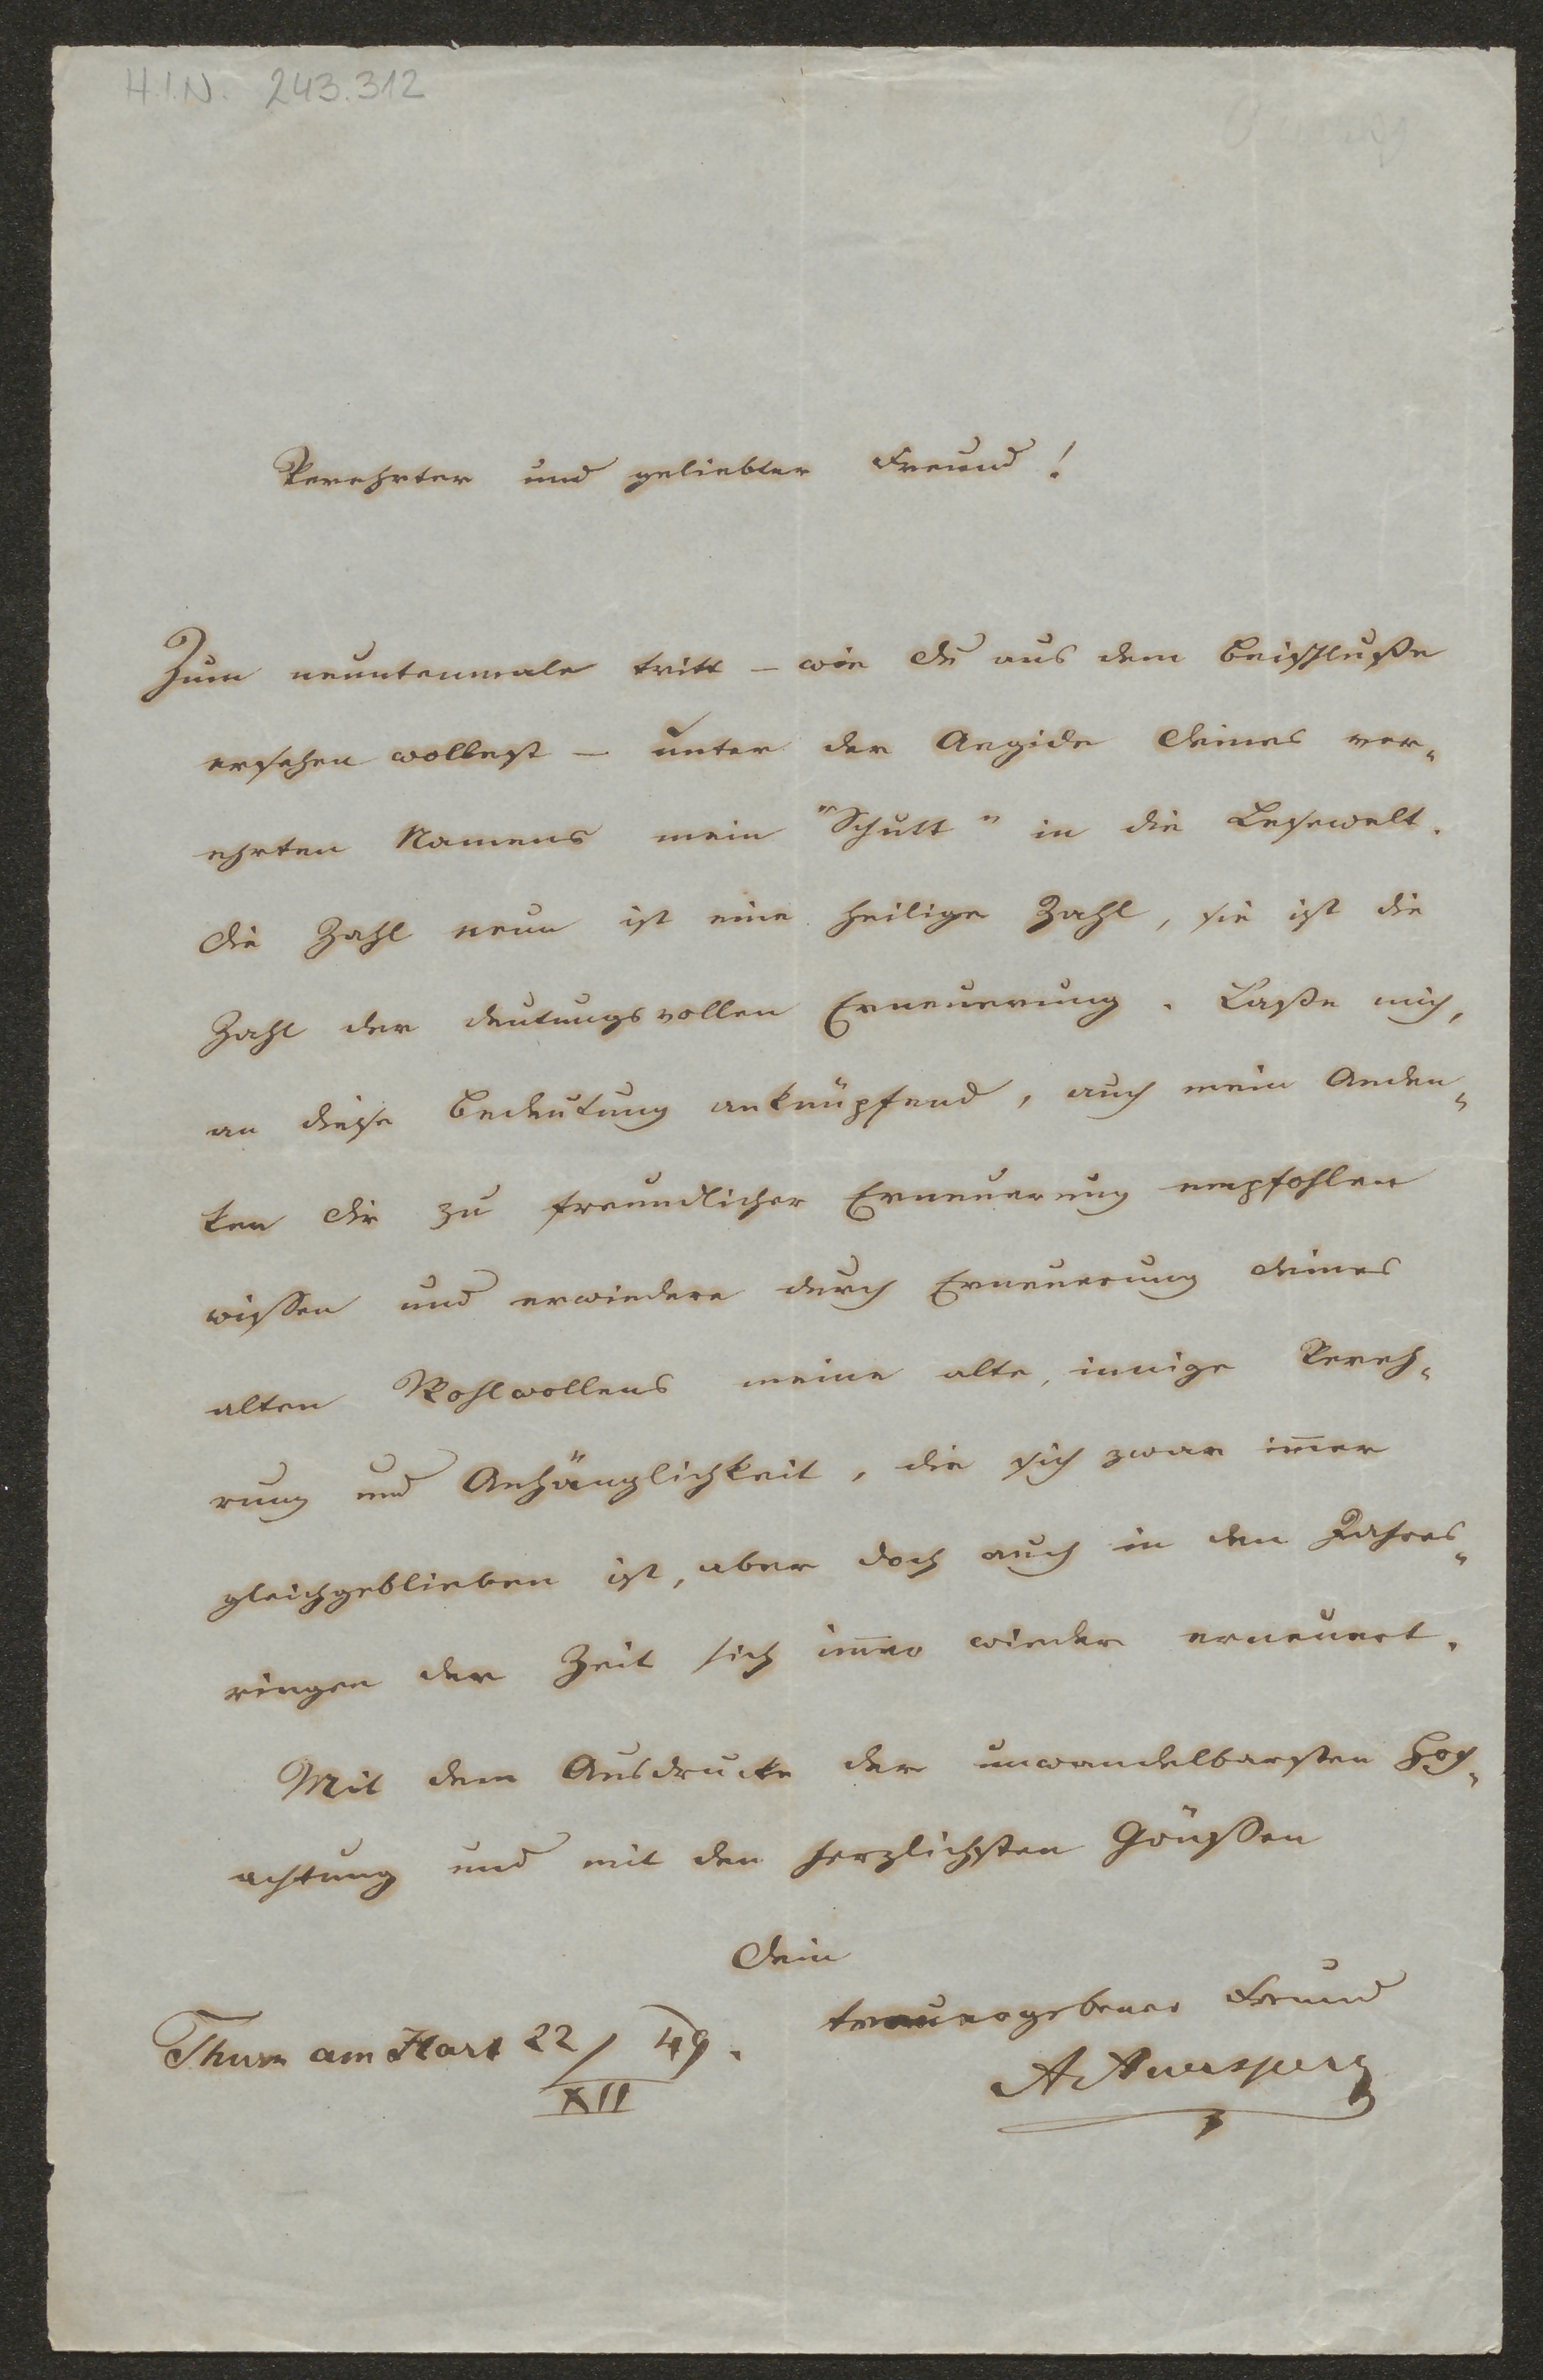 H.I.N. 243.312
Verehrter und geliebter Freund!
Zum neuntenmale tritt – wie Du aus dem Beischluße
ersehen wollest – unter der Aegide Deines ver-
ehrten Namens mein "Schutt" in die Lesewelt.
Die Zahl neun ist eine heilige Zahl, sie ist die
Zahl der deutungsvollen Erneuerung. Laße mich,
an diese Bedeutung anknüpfend, auch mein Anden-
ken Dir zu freundlicher Erneuerung empfohlen
wissen und erwiedere durch Erneuerung Deines
alten Wohlwollens meine alte, innige Vereh-
rung und Anhänglichkeit, die sich zwar im̅er
gleichgeblieben ist, aber doch auch in den Jahres-
ringen der Zeit sich im̅er wieder erneuert.
Mit dem Ausdrucke der unwandelbarsten Hoch-
achtung und mit den herzlichsten Grüßen
Dein
treuergebener Freund
Thurn am Hart 22/XII 49.
A Auersperg